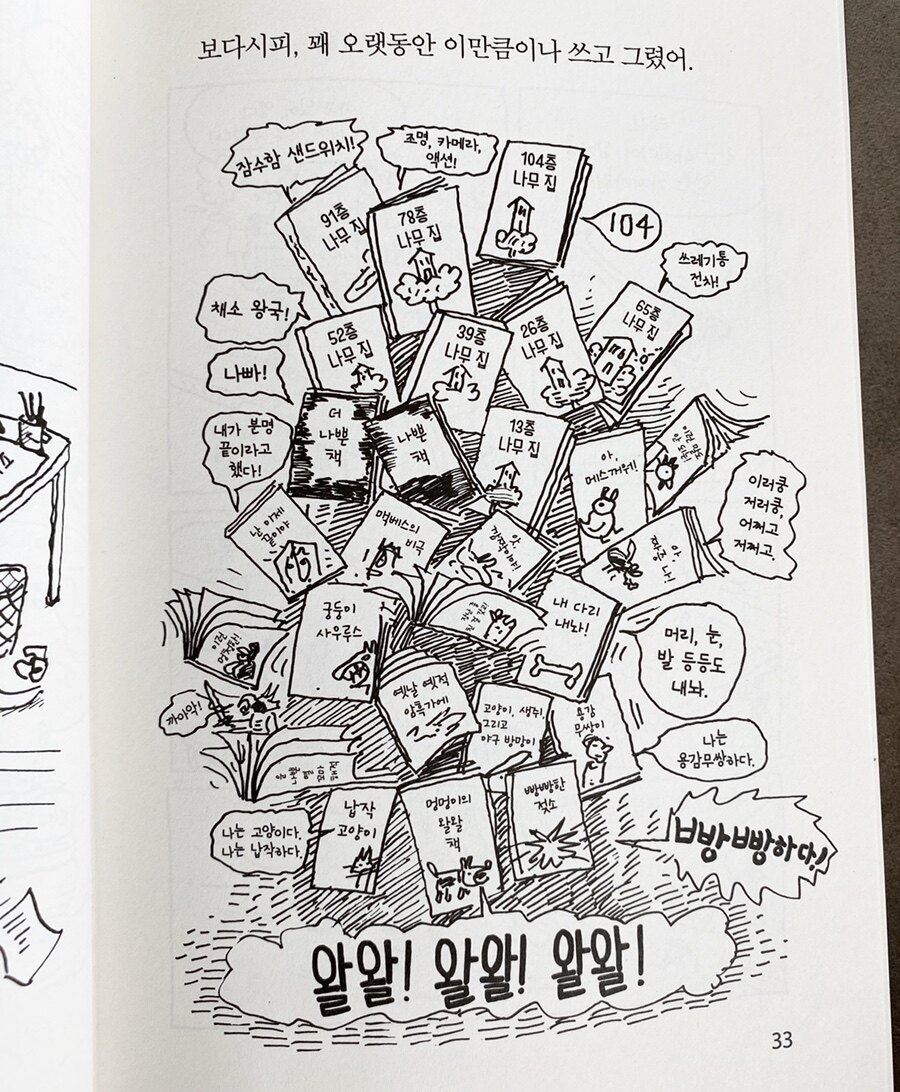 보다시피, 꽤 오랫동안 이만큼이나 쓰고 그렸어.
잠수함 샌드위치!
조명, 카메라,
액션!
104층
나무 집
104
91층
나무 집
78층
나무 집
쓰레기통
전차!
채소 왕국!
52층
나무 집
39층
나무 집
26층
나무 집
65층
나무 집
나빠!
더
나쁜
책
나쁜
책
13층
나무 집
아,
메스꺼워!
내가 분명
끝이라고
했다!
이러쿵
저러쿵,
어쩌고
저쩌고.
날 이제
끝이야
맥베스의
비극
앗,
깜짝이야!
아,
짜증
나!
궁둥이
사우루스
내 다리
내놔!
머리, 눈,
발 등등도
내놔.
까아악!
옛날 옛적
암흑가에
고양이, 생쥐,
그리고
야구 방망이
용감
무쌍이
나는
용감무쌍하다.
나는 고양이다.
나는 납작하다.
납작
고양이
멍멍이의
왈왈
책
빵빵한
젖소
빵빵하다!
왈왈! 왈왈! 왈왈!
33